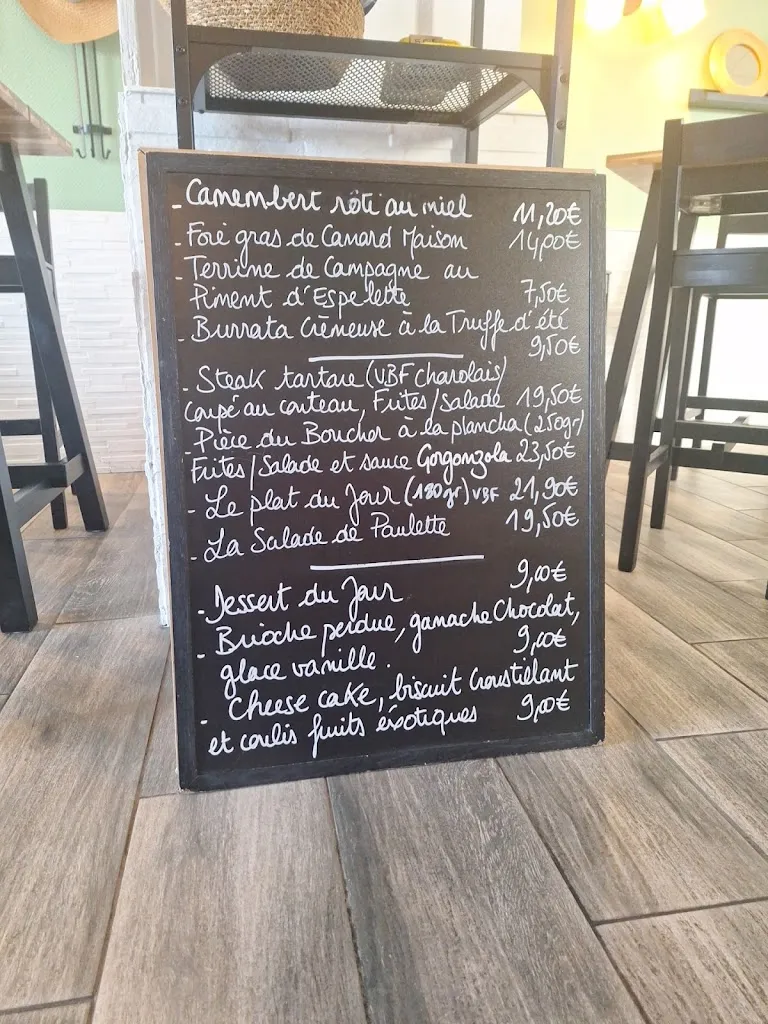 - Camembert rôti au miel 11,20€
- Foie gras de Canard Maison 14,00€
- Terrine de Campagne au
Piment d'Espelette 7,50€
- Burrata Crèmeuse à la Truffe d'été
9,50€
- Steak tartare (VBF Charolais)
Coupé au couteau, Frites/Salade 19,50€
- Pièce du Boucher à la plancha (250gr)
Frites/Salade et sauce Gorgonzola 23,50€
- Le plat du Jour (180gr) VBF 21,90€
- La Salade de Paulette 19,50€
- Dessert du Jour 9,00€
- Brioche perdue, ganache Chocolat,
glace vanille. 9,00€
- Cheese cake, biscuit Croustillant
et coulis fruits éxotiques 9,00€